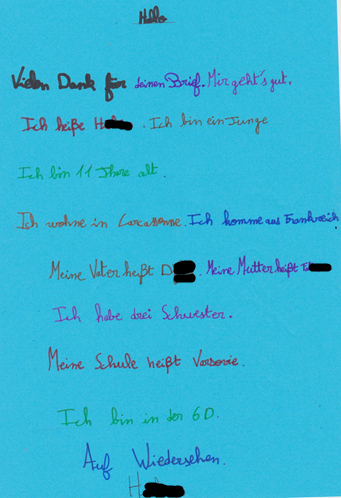 Hello
Vielen Dank für deinen Brief. Mir geht's gut.
Ich heiße H. Ich bin ein Junge
Ich bin 11 Jhare alt.
Ich wohne in Carcassonne. Ich komme aus Frankreich
Meine Vater heißt D. Meine Mutter heißt
Ich habe drei Schwester.
Meine Schule heißt Varsovie.
Ich bin in der 6D.
Auf Wiedersehen.
H